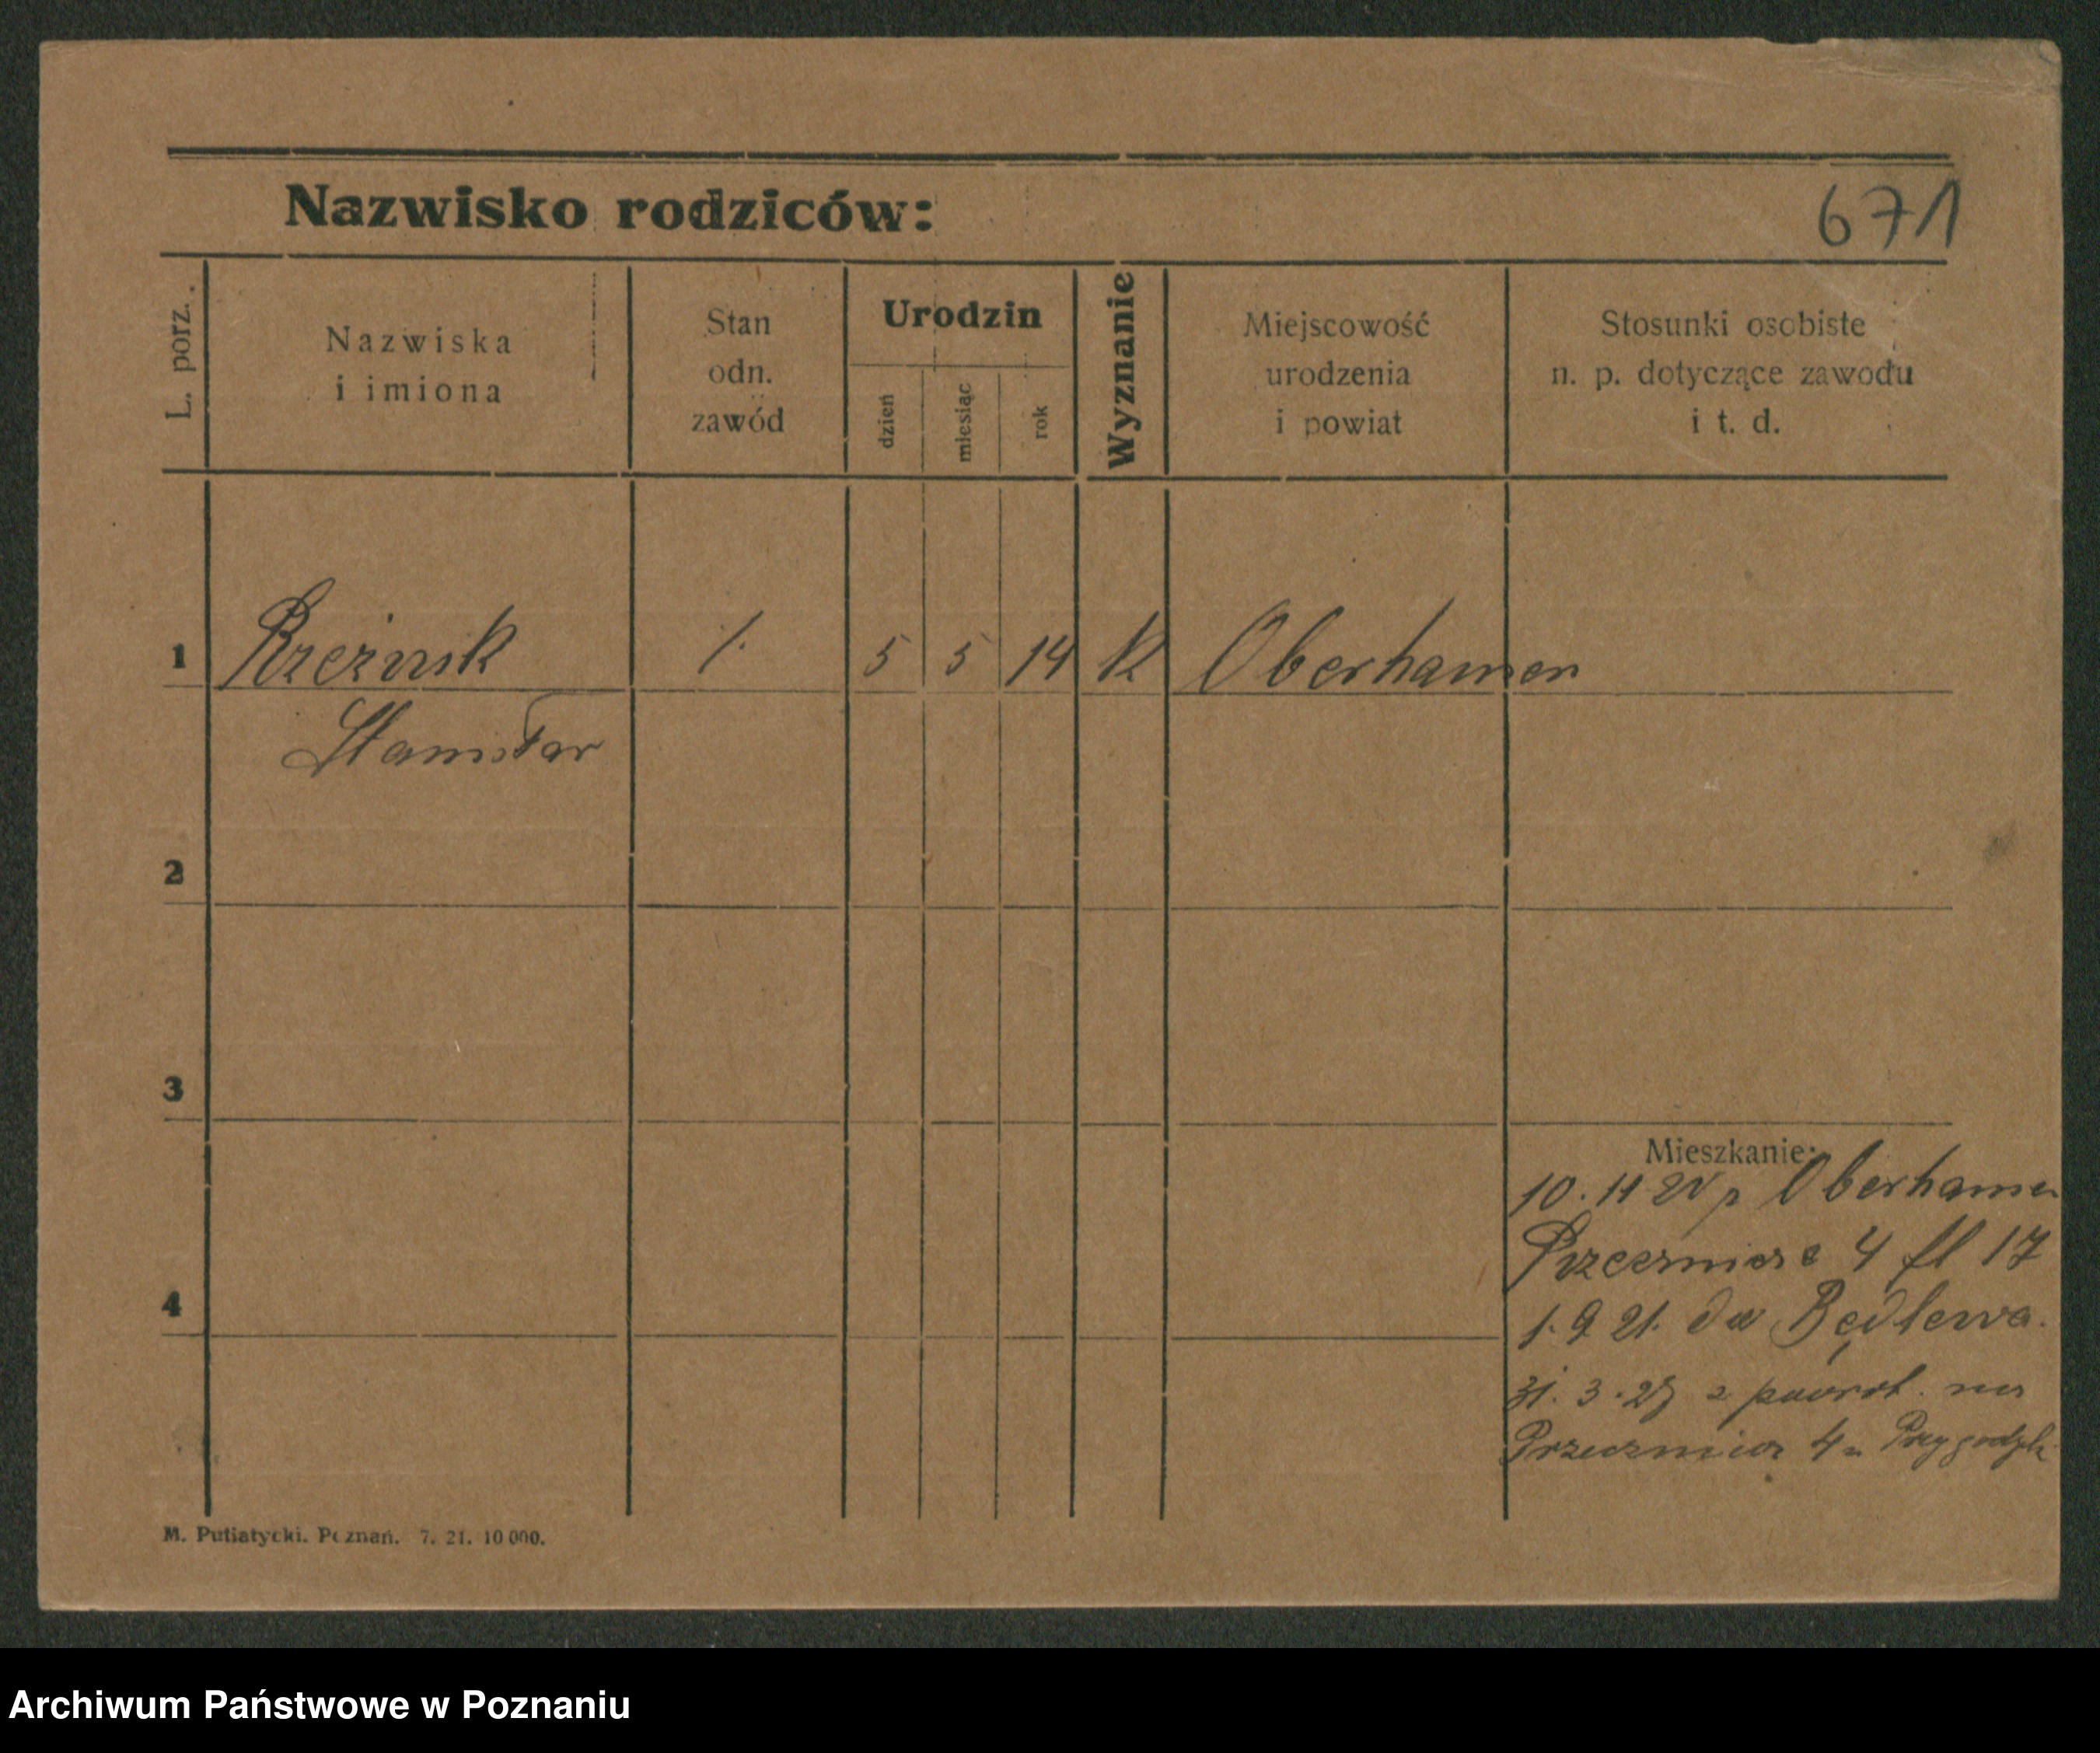 Nazwisko rodziców:
671
L. porz.
Nazwiska
i imiona
Stan
odn.
zawód
Urodzin
dzień
miesiąc
rok
Wyznanie
Miejscowość
urodzenia
i powiat
Stosunki osobiste
n. p. dotyczące zawodu
i t. d.
1 Rzeżnik 1. 5 5 14 K Oberhamer
Stanisław
2
3
Mieszkanie:
10. 11 20 z Oberhamer
Przecznica 4 fl 17
4
1. 9 21. do Będlewa.
31. 3. 25 z powrot. na
Przecznica 4 u
M. Putiatycki. Poznań. 7. 21. 10 000.
Archiwum Państwowe w Poznaniu